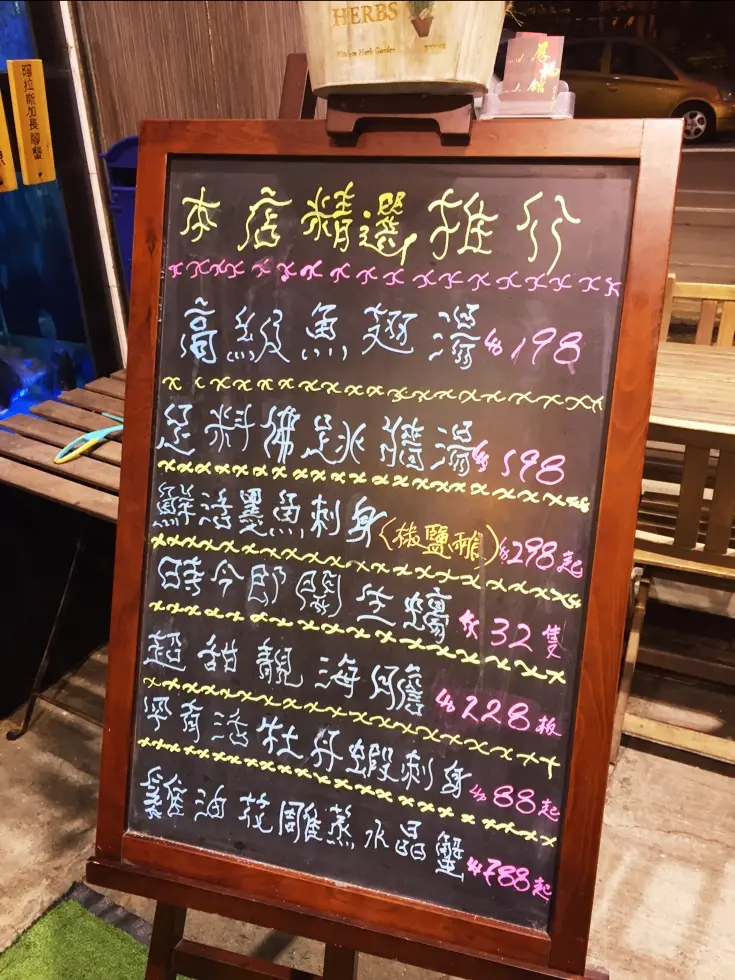 HERBS
Kitchen Herb Garden
阿拉斯加長腳蟹
本店精選推介
高級魚翅湯 $198
足料佛跳牆湯 $598
鮮活墨魚刺身(椒鹽雞) $298起
時令即開生蠔 $32隻
超甜靚海膽 $228板
孕育活牡丹蝦刺身 $88起
雞油花雕蒸水晶蟹 $788起